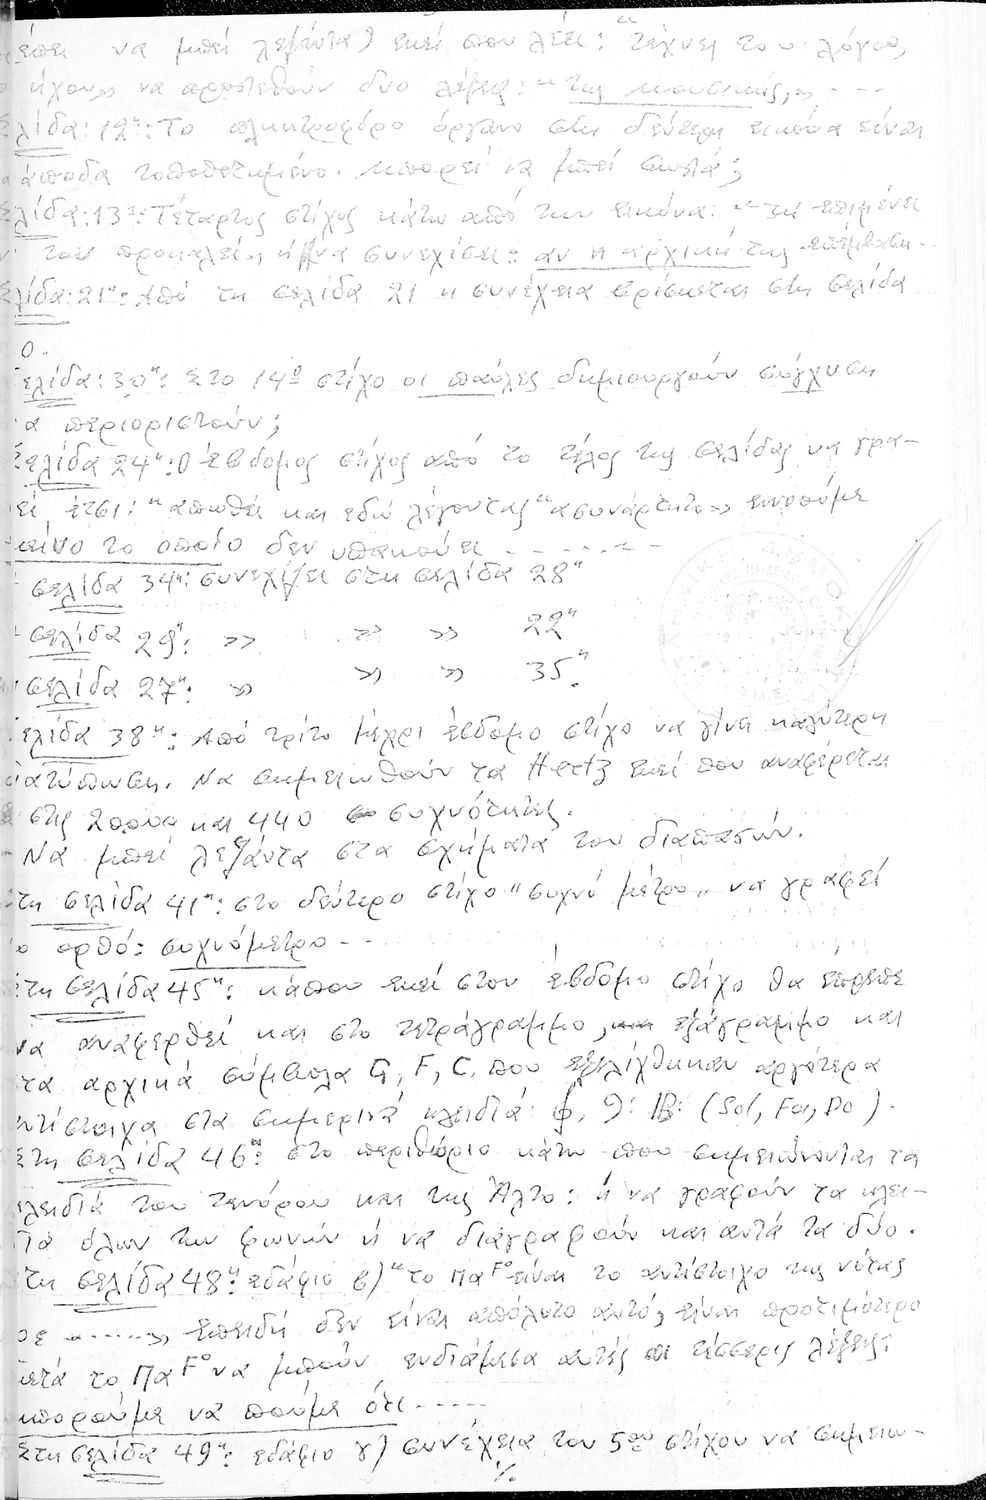 να μπεί λεζάντα) εκεί που λέει: "τέχνη του λόγου,
ήχου», να προστεθούν δύο λέξεις: "της μουσικής,, - - - -
λίδα: 12η: Το πληκτροφόρο όργανο στη δεύτερη εικόνα είναι
άποδα τοποθετημένο. Μπορεί να μπεί σωστά;
λίδα: 13η: Τέταρτος στίχος κάτω από την εικόνα: "επιμένει
του προκαλεί,, ή να συνεχίσει: αν η αρχική της επέμβαση..
λίδα: 21η: Από τη σελίδα 21 η συνέχεια βρίσκεται στη σελίδα
0.
ελίδα: 30η: Στο 14ο στίχο οι παύλες δημιουργούν σύγχυση
α περιοριστούν;
ελίδα 24η: Ο έβδομος στίχος από το τέλος της σελίδας να γρα-
εί έτσι: "απωθεί και εδώ λέγοντας "ασυνάρτητο,, εννοούμε
κείνο το οποίο δεν υπακούει - - - - - - -
σελίδα 34η: συνεχίζει στη σελίδα 28η
σελίδα 29η: >> >> >> 22η
σελίδα 27η: >> >> >> 35η.
ελίδα 38η: Από τρίτο μέχρι έβδομο στίχο να γίνει καλύτερη
ατύπωση. Να σημειωθούν τα Hertz εκεί που αναφέρεται
στις και 440 συχνότητες.
Να μπεί λεζάντα στα σχήματα του διαπασών.
τη σελίδα 41η: στο δεύτερο στίχο "συχνό μέτρο,, να γραφεί
ο ορθό: συχνόμετρο - -
τη σελίδα 45η: κάπου εκεί στον έβδομο στίχο θα έπρεπε
να αναφερθεί και στο τετράγραμμο, εξάγραμμο και
τα αρχικά σύμβολα G, F, C. που εξελίχθηκαν αργότερα
ντίστοιχα στα σημερινά κλειδιά: (Sol, Fa, Do).
Στη σελίδα 46η: στο περιθώριο κάτω που σημειώνονται τα
λειδιά του τενόρου και της Άλτο: ή να γραφούν τα κλει-
ιά όλων των φωνών ή να διαγραφούν και αυτά τα δύο.
τη σελίδα 48η: εδάφιο β) "το Πα είναι το αντίστοιχο της νότας
ρε - - - - -,, επειδή δεν είναι απόλυτο αυτό, είναι προτιμότερο
μετά το Πα να μπούν ενδιάμεσα αυτές οι τέσσερις λέξεις:
μπορούμε να πούμε ότι - - - - -
Στη σελίδα 49η: εδάφιο γ) συνέχεια του 5ου στίχου να σημειω-
./.